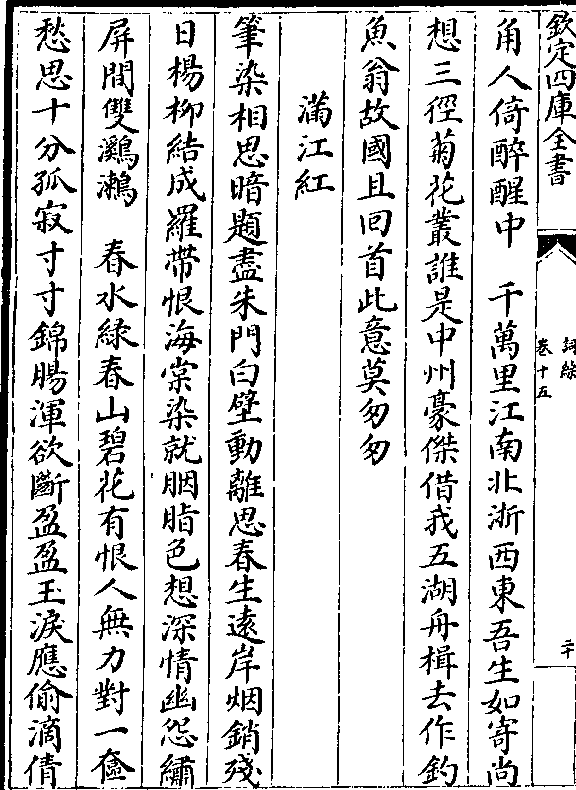 欽定四庫全書
詞綜
卷十五
二十
角人倚醉醒中　千萬里江南北浙西東吾生如寄尚
想三徑菊花叢誰是中州豪傑借我五湖舟楫去作釣
魚翁故國且回首此意莫匆匆
滿江紅
筆染相思暗題盡朱門白壁動離思春生遠岸烟銷殘
日楊柳結成羅帶恨海棠染就胭脂色想深情幽怨繡
屏間雙鸂鶒　春水綠春山碧花有恨人無力對一奩
愁思十分孤寂寸寸錦腸渾欲斷盈盈玉淚應偷滴倩